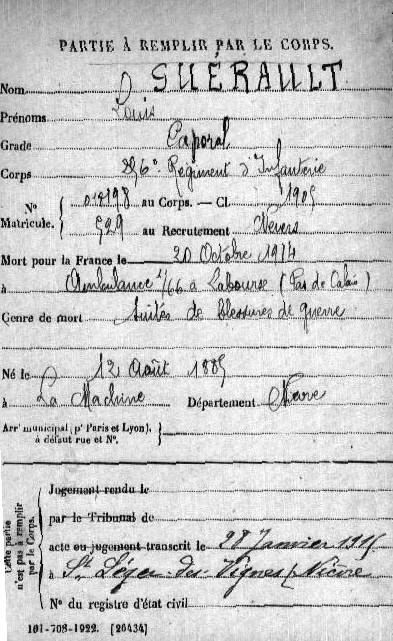 PARTIE À REMPLIR PAR LE CORPS.
Nom GUÉRAULT
Prénoms Louis
Grade Caporal
Corps 256e Régiment d'Infanterie
N° Matricule. { 018198 au Corps. — Cl. 1905
529 au Recrutement Nevers
Mort pour la France le 20 Octobre 1914
à Ambulance 1/66 à Labourse (Pas de Calais)
Genre de mort Suites de blessures de guerre
Né le 12 Août 1885
à La Machine Département Nièvre
Arrt municipal (pr Paris et Lyon), à défaut rue et N°. {
Cette partie n'est pas à remplir par le Corps.
Jugement rendu le
par le Tribunal de
acte ou jugement transcrit le 28 Janvier 1915
à St Léger des Vignes (Nièvre
N° du registre d'état civil
101-708-1922. [26434]